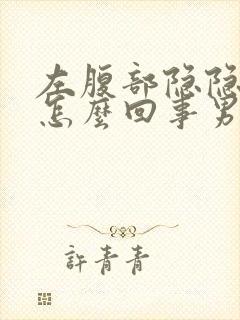 左腹部隐隐
怎麼回事男
許青青